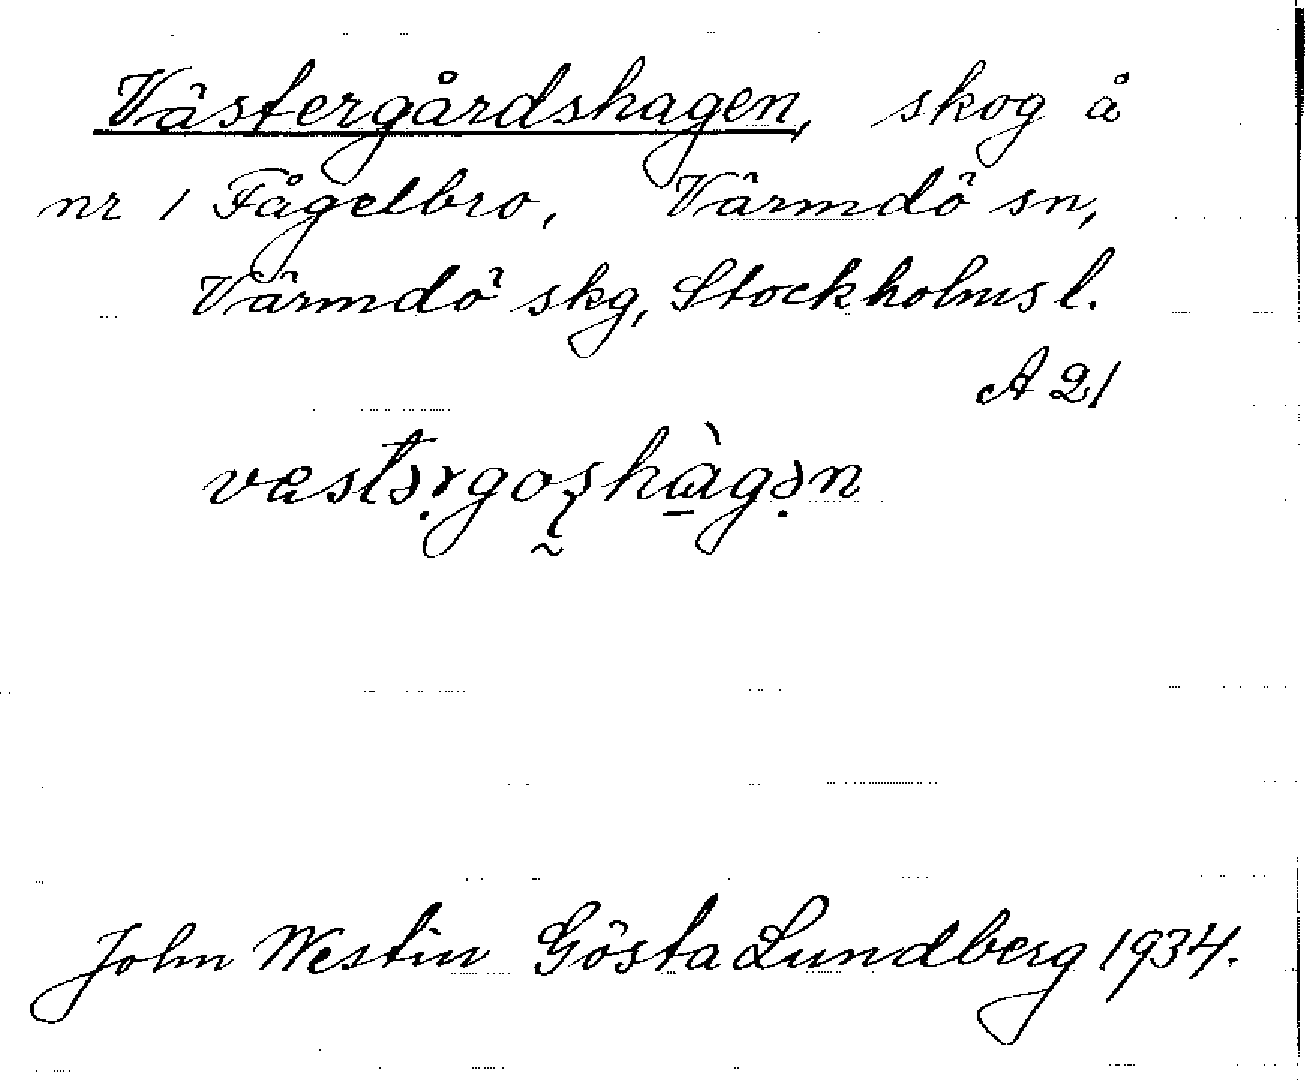 Västergårdshagen, skog å
nr 1 Fågelbro, Värmdö sn,
Värmdö skg, Stockholms l.
A 21
John Westin Gösta Lundberg 1934.